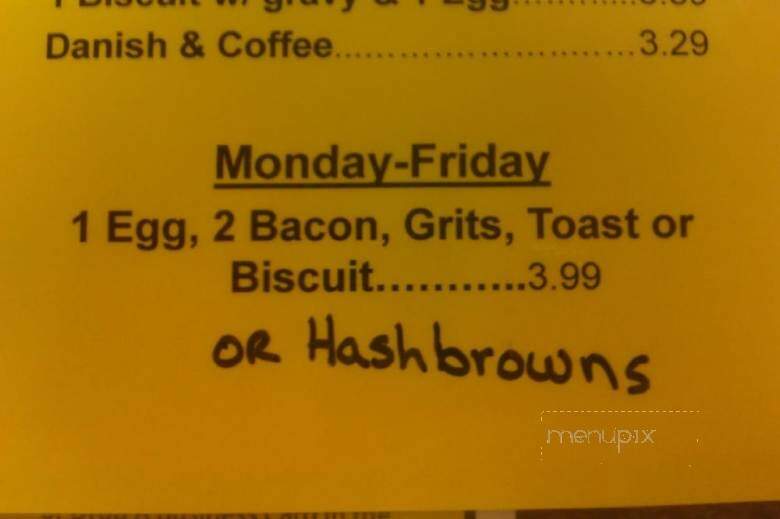 1 Biscuit w/ gravy & 1 Egg
Danish & Coffee..........................3.29
Monday-Friday
1 Egg, 2 Bacon, Grits, Toast or
Biscuit...........3.99
OR Hashbrowns
menupix